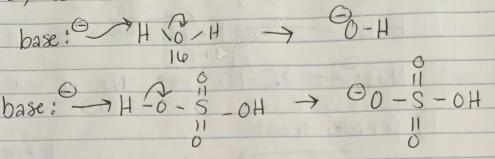 base:⊖ H \O/ H → ⊖O-H
16
O
O
base:⊖ → H-O-S-OH → ⊖O-S-OH
O
O